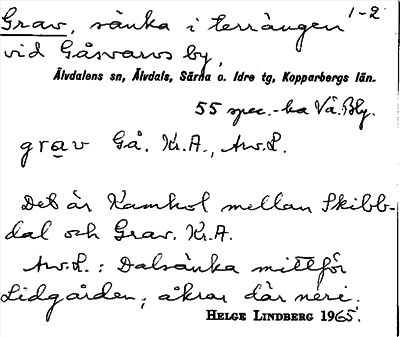 Grav, sänka i terrängen 1-2
vid Gåsvarvs by,
Älvdalens sn, Älvdals, Särna o. Idre tg, Kopparbergs län.
55 spec.-ka Vå.Bly.
grav Gå. Kr.A., Aw.L.
Det är Kamhol mellan Skibb-
dal och Grav. Kr.A.
Aw.L.: Dalsänka mittför
Lidgården; åkrar där neri.
HELGE LINDBERG 1965.